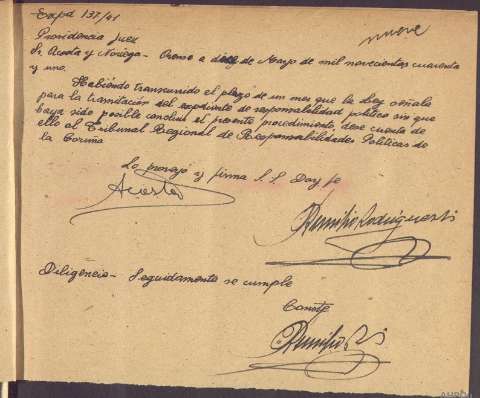 Expd 137/41
nueve
Providencia Juez
Sr. Acosta y Noriega.- Orense a diez de Mayo de mil novecientos cuarenta
y uno.
Habiéndo transcurrido el plazo de un mes que la Ley señala
para la tramitación del expediente de responsabilidad politica sin que
haya sido posible concluir el presente procedimiento, dese cuenta de
ello al Tribunal Regional de Responsabilidades Politicas de
la Coruña
Lo proveyó y firma S.S. Doy fe
Acosta
Remisio Rodriguez
Diligencia- Seguidamente se cumple
Conste